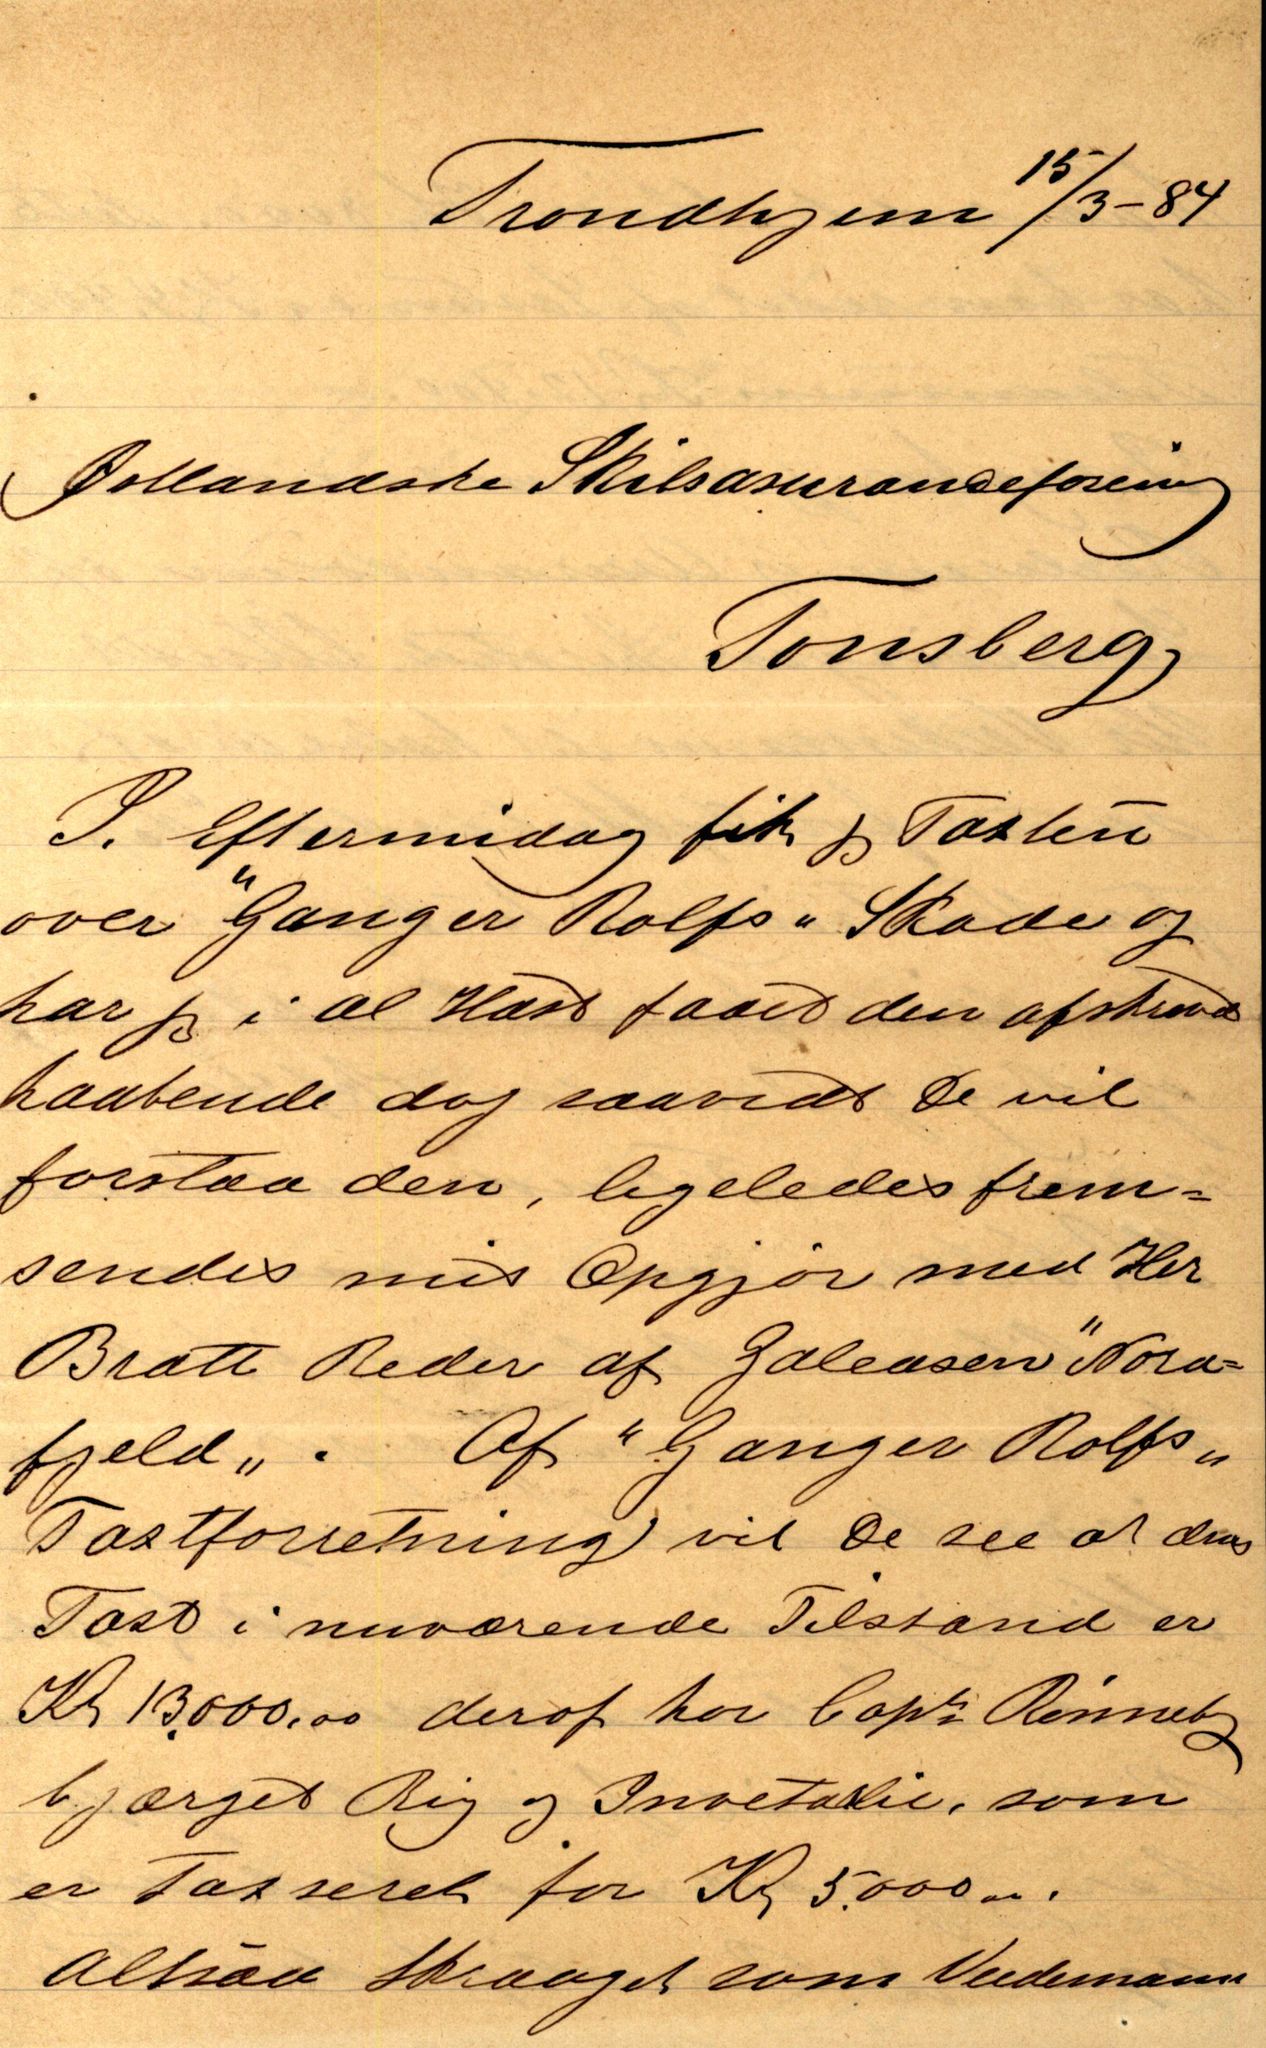 Trondhjem 15/3-84
Østlandske Skibsassuranceforening
Tønsberg
I Eftermidag fik jeg Taxten
over "Ganger Rolfs" Skade og
har jeg i al Hast faaet den afskrevet
haabende dog saavidt De vil
forstaa den, ligeledes frem=
sendes mit Opgjør med Her
Bratt Reder af Galeasen "Nora=
fjeld". Af "Ganger Rolfs"
Taxtforretning vil De see at dens
Taxt i nuværende Tilstand er
Kr 13.000.00 deraf har Capt. Rønneby
bjærget Rig og Invetarie, som
er Taxseret for Kr 5.000 .
Altsaa Skroget som